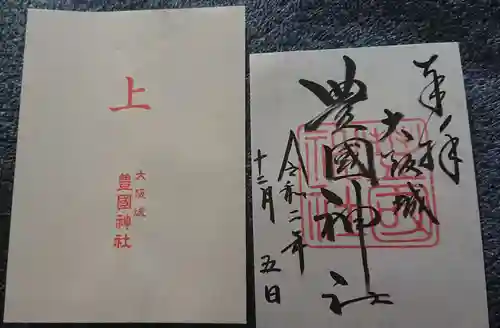 上
大阪城
豊國神社
奉拝
大阪城
豊國神社
令和二年
十二月 五日
豊國神社